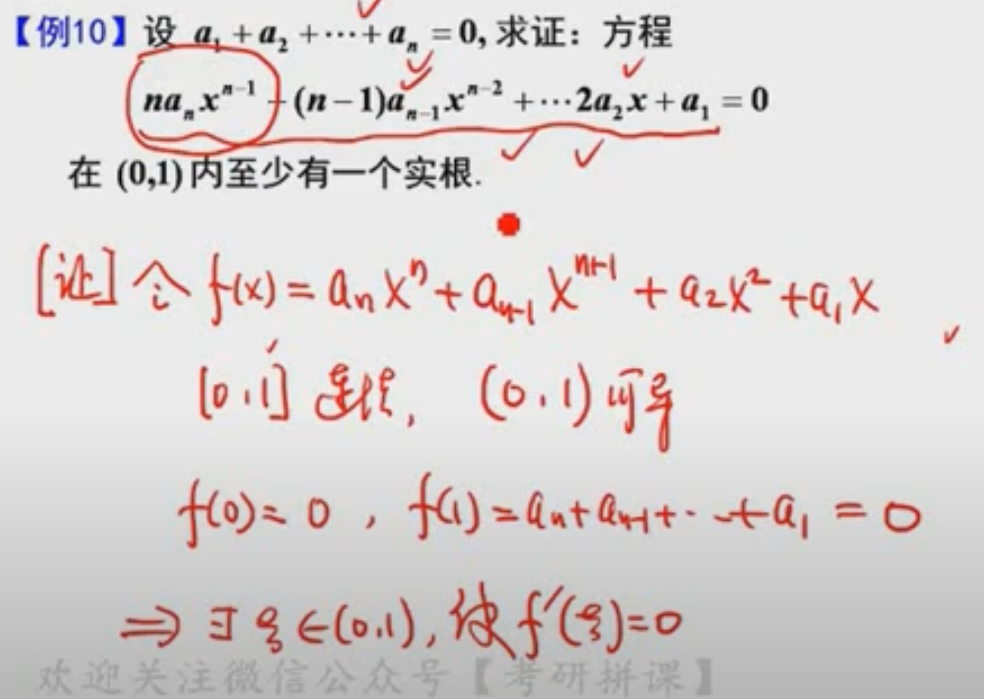 【例10】设 a₁ + a₂ + ⋯ + aₙ = 0, 求证：方程
naₙxⁿ⁻¹ + (n−1)aₙ₋₁xⁿ⁻² + ⋯2a₂x + a₁ = 0
在 (0,1) 内至少有一个实根.
[证] 令 f(x) = aₙxⁿ + aₙ₋₁xⁿ⁺¹ + a₂x² + a₁x
[0,1] 连续, (0,1) 可导
f(0) = 0, f(1) = aₙ + aₙ₋₁ + ⋯ + a₁ = 0
⇒ ∃ ξ ∈ (0,1), 使 f′(ξ) = 0
欢迎关注微信公众号【考研拼课】